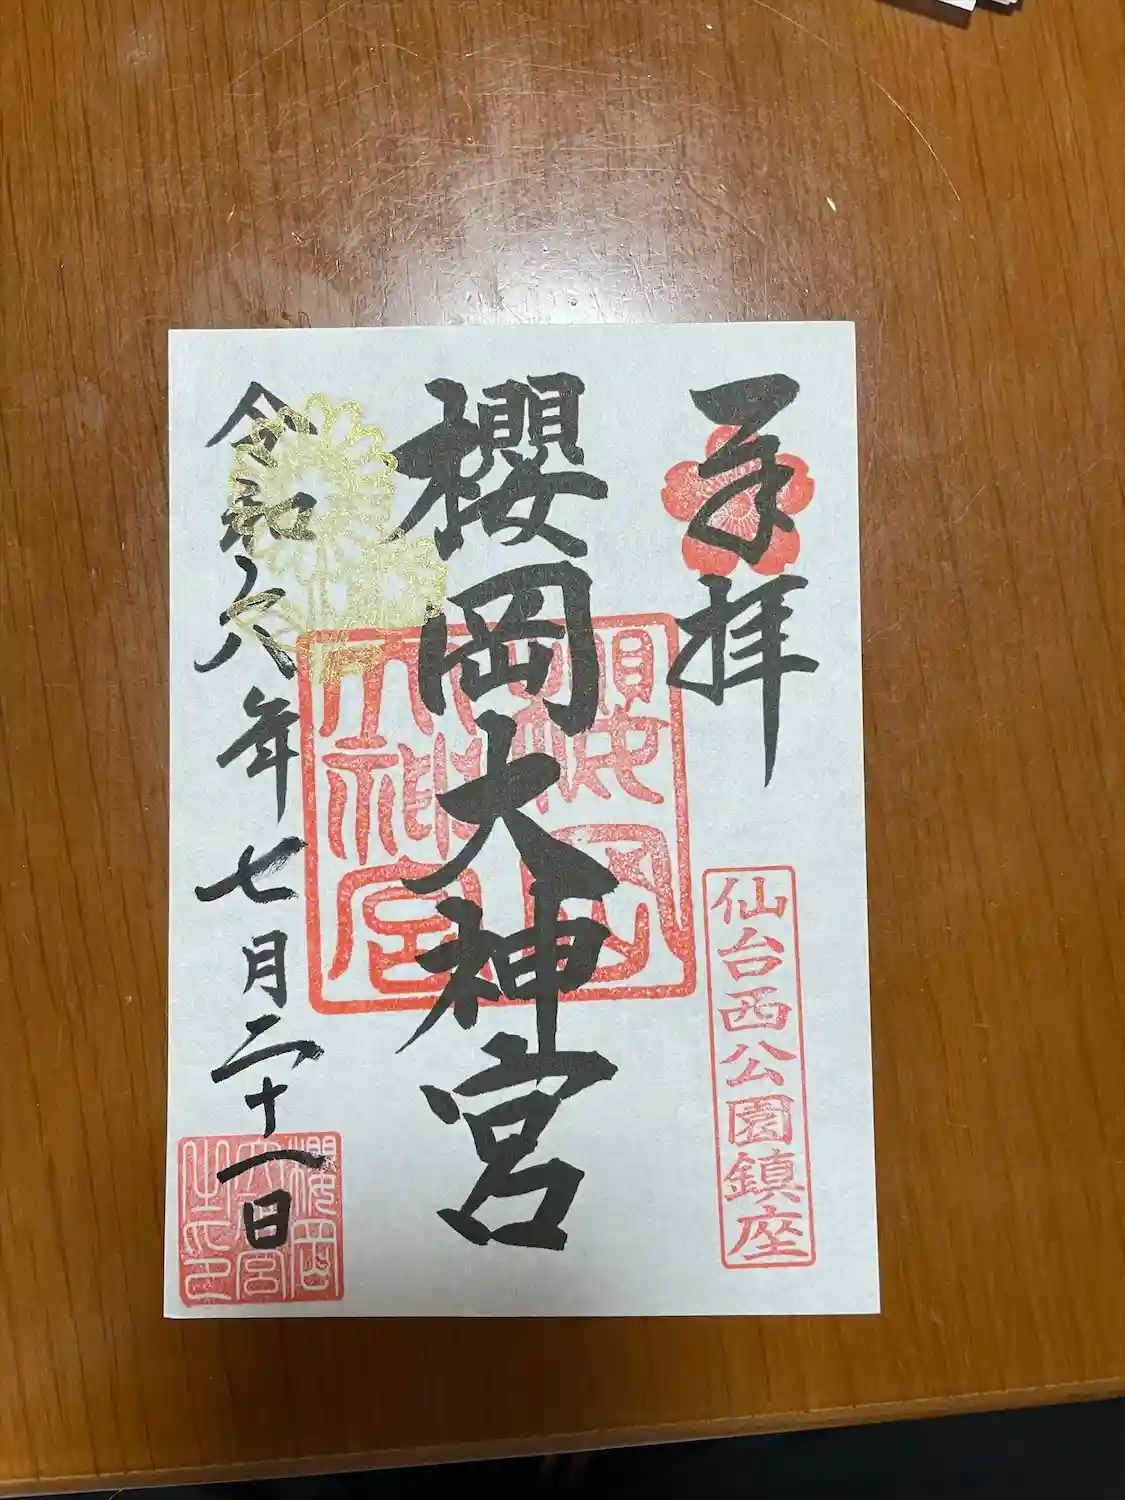 奉拝
仙台西公園鎮座
櫻岡大神宮
櫻岡
大神宮
令和六年七月二十八日
櫻岡
大神宮
之印